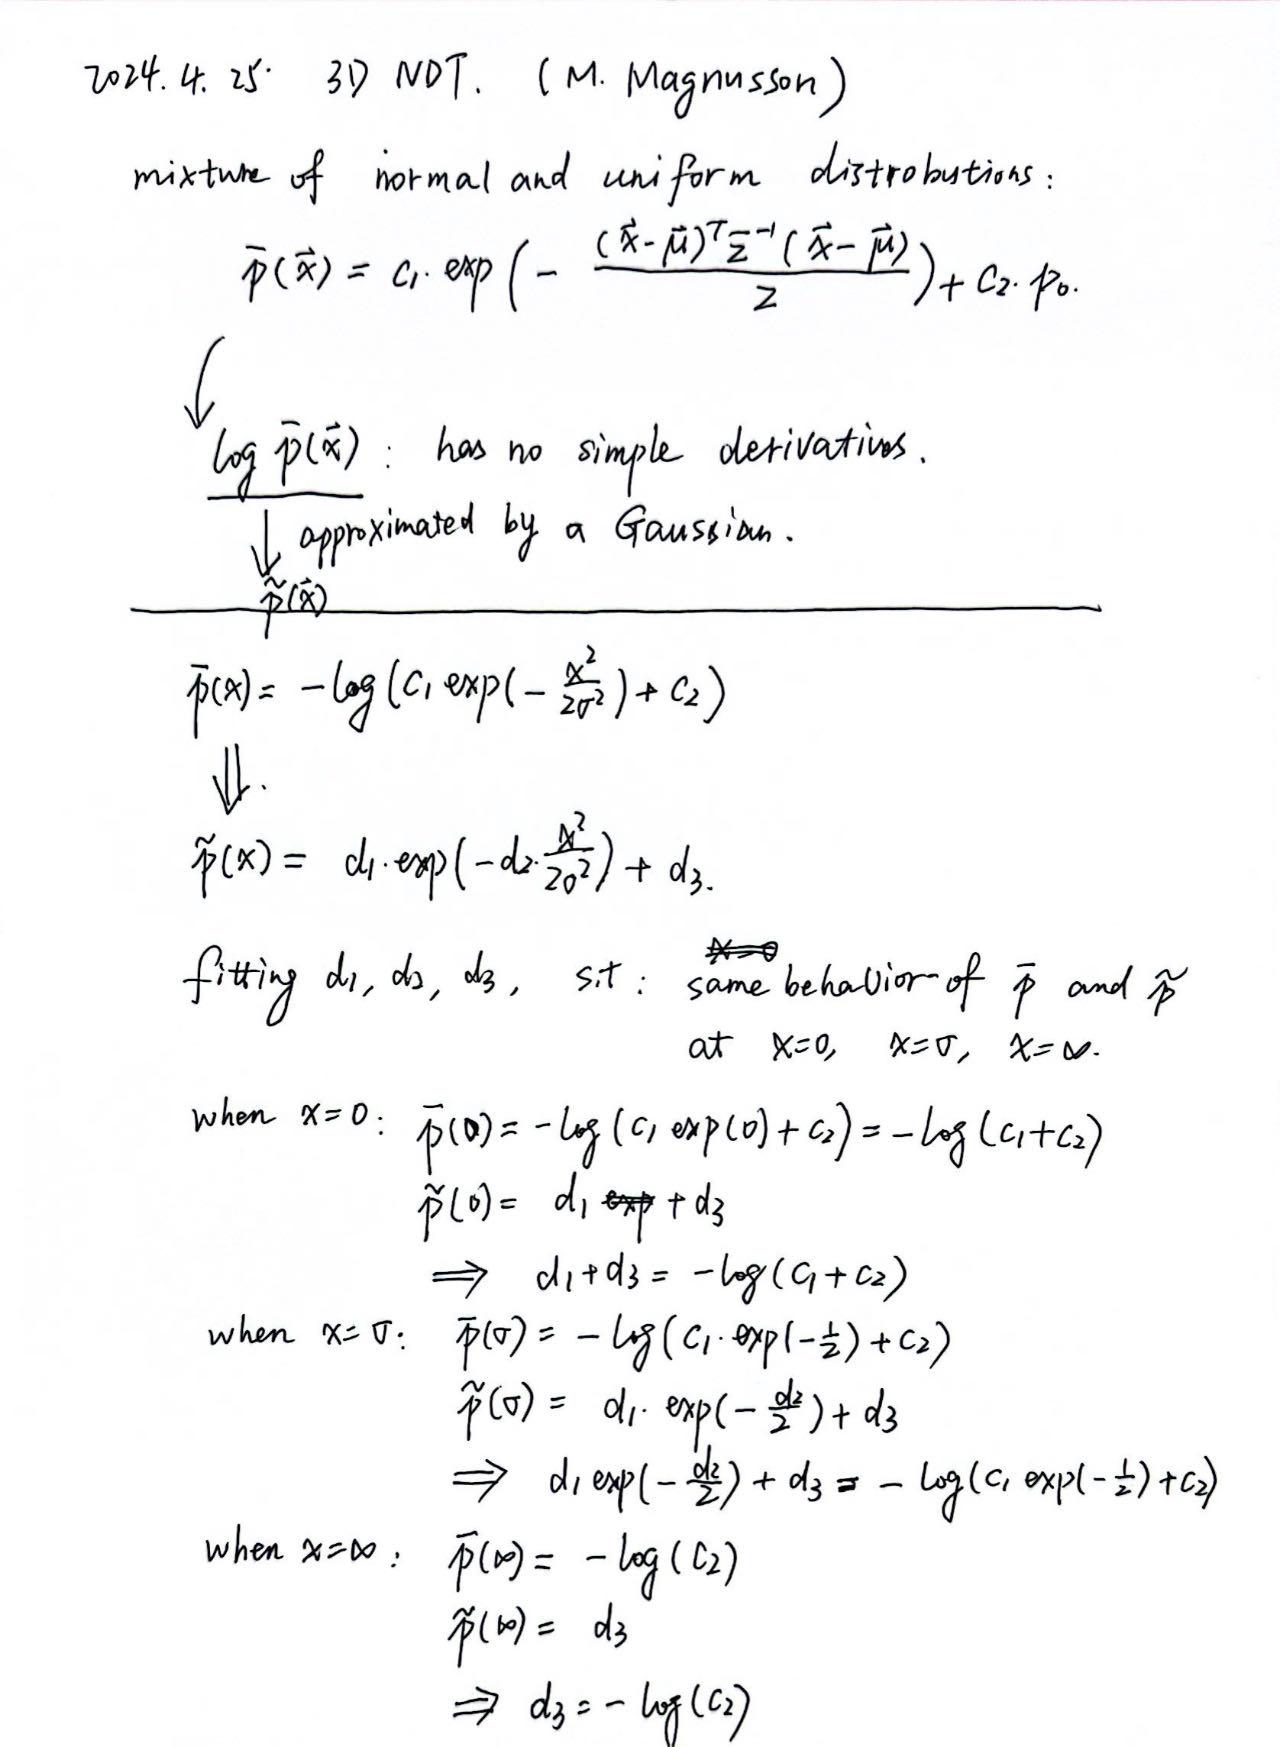 2024.4.25. 3D NDT. (M. Magnusson)
mixture of normal and uniform distrobutions:
p̄(x⃗) = c₁·exp(-\frac{(x⃗-μ⃗)ᵀΣ⁻¹(x⃗-μ⃗)}{2}) + c₂·p₀.
log p̄(x⃗) : has no simple derivatives.
↓ approximated by a Gaussian.
p̃(x⃗)
p̄(x) = -log(c₁ exp(-\frac{x²}{2σ²}) + c₂)
⇓.
p̃(x) = d₁·exp(-d₂·\frac{x²}{2σ²}) + d₃.
fitting d₁, d₂, d₃, s.t : same behavior of p̄ and p̃
at x=0, x=σ, x=∞.
when x=0: p̄(0) = -log(c₁ exp(0) + c₂) = -log(c₁+c₂)
p̃(0) = d₁ + d₃
⇒ d₁+d₃ = -log(c₁+c₂)
when x=σ: p̄(σ) = -log(c₁·exp(-\frac{1}{2}) + c₂)
p̃(σ) = d₁·exp(-\frac{d₂}{2}) + d₃
⇒ d₁ exp(-\frac{d₂}{2}) + d₃ = -log(c₁ exp(-\frac{1}{2}) + c₂)
when x=∞: p̄(∞) = -log(c₂)
p̃(∞) = d₃
⇒ d₃ = -log(c₂)